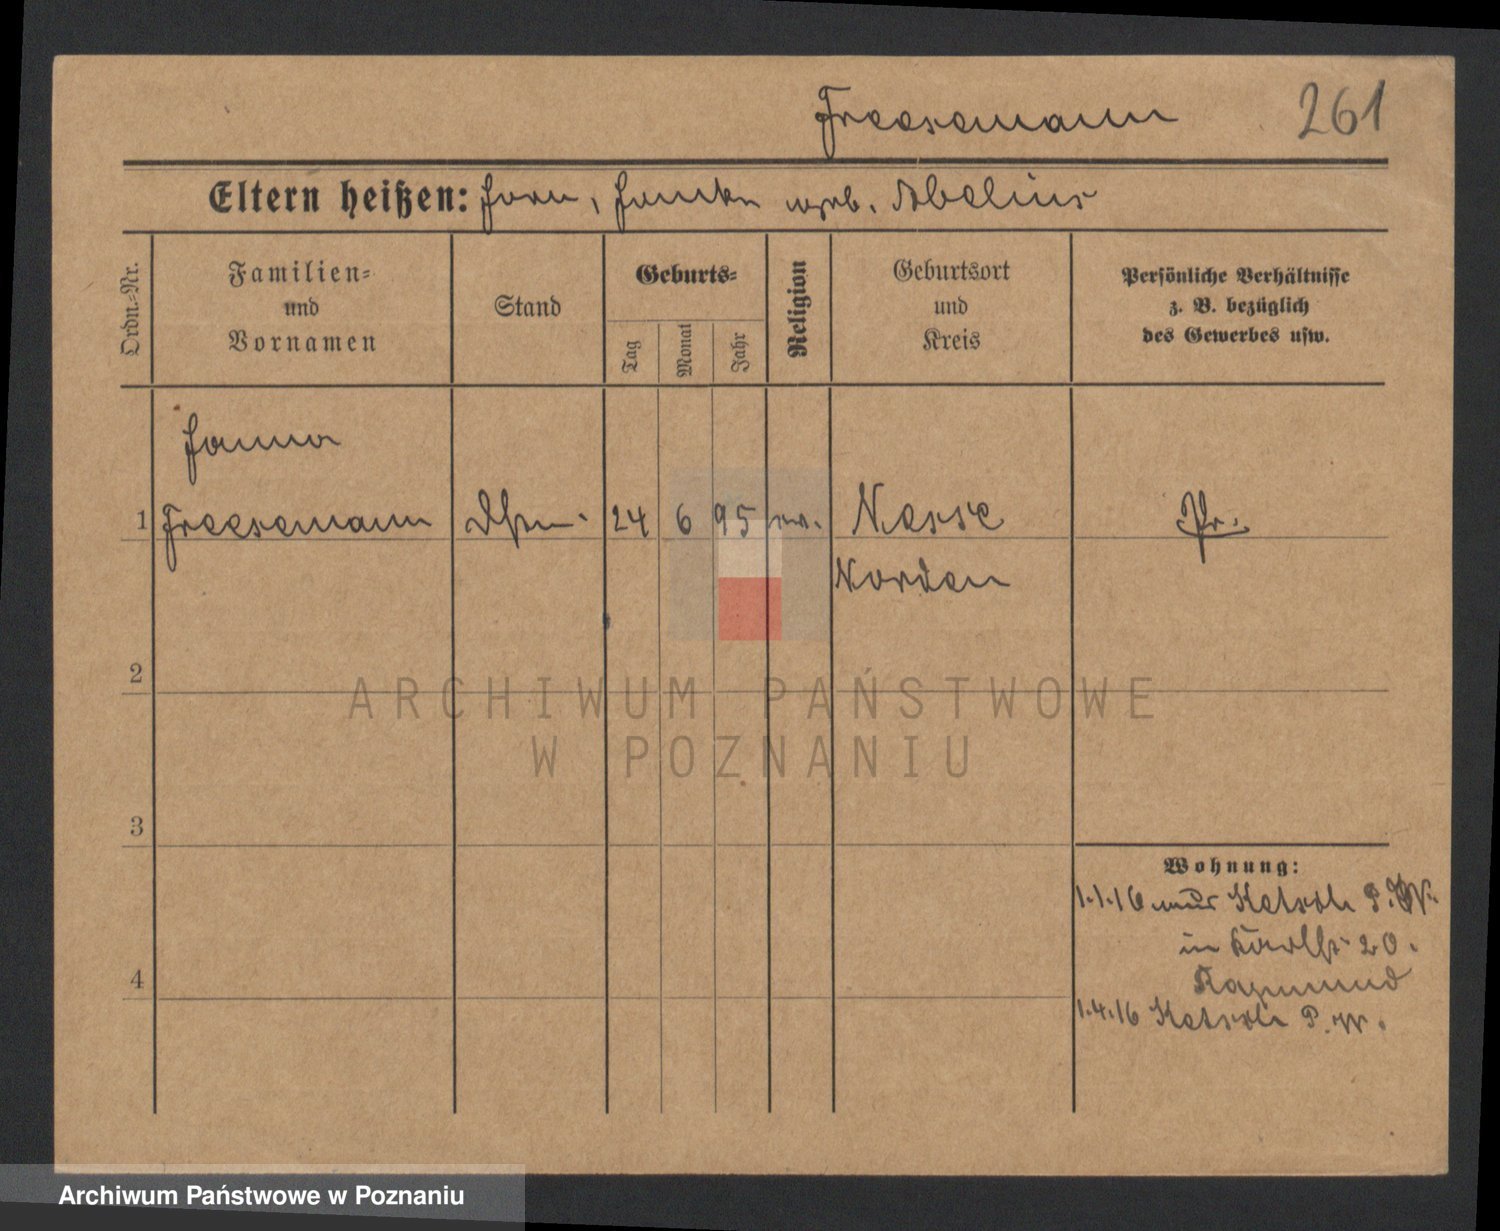 Freesemann 261
Eltern heißen: geb. Abelius
Ordn.-Nr.
Familien-
und
Vornamen
Stand
Geburts-
Tag
Monat
Jahr
Religion
Geburtsort
und
Kreis
Persönliche Verhältnisse
z. B. bezüglich
des Gewerbes usw.
1 Freesemann 24 6 95 ev. Nesse Pr.
Norden
2
ARCHIWUM PAŃSTWOWE
W POZNANIU
3
Wohnung:
1.1.16
in 20.
4
1.4.16 P. W.
Archiwum Państwowe w Poznaniu